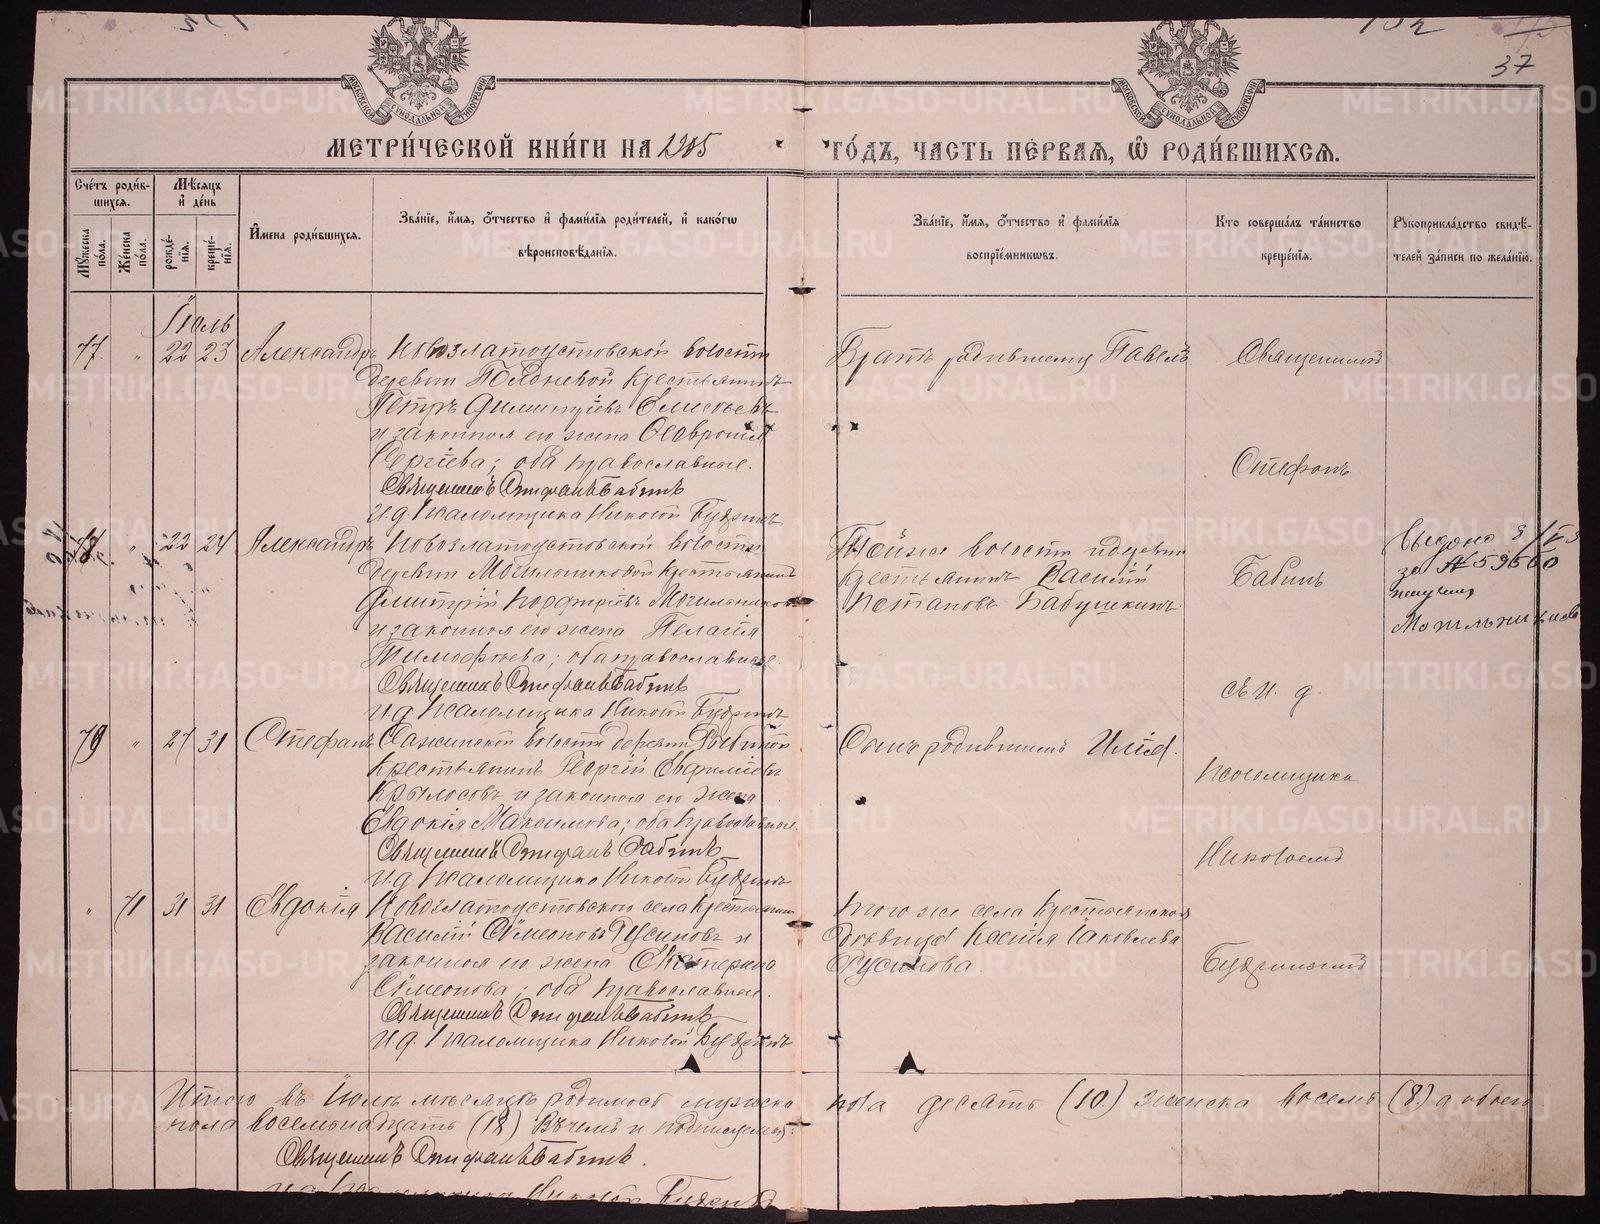 37
МЕТРИ́ЧЕСКОЙ КНИ́ГИ НА 1905 ГО́ДЪ, ЧАСТЬ ПЕ́РВАЯ, Ѡ РОДИ́ВШИХСЯ.
Сче́тъ роди́вшихся.
Му́жеска по́ла.
Же́нска по́ла.
Мѣ́сяцъ и де́нь
рожде́нія.
креще́нія.
И́мена роди́вшихся.
Зва́ніе, и́мя, о́тчество и́ фами́лія роди́телей, и́ како́гѡ вѣроисповѣ́данія.
Зва́ніе, и́мя, о́тчество и́ фами́лія воспріе́мникѡвъ.
Кто соверша́лъ та́инство креще́нія.
Рукоприкла́дство свидѣ́телей за́писи по жела́нію.
Іюль
77 " 22 23 Александръ
Новозлатоустовской волости
деревни Полдневой крестьянинъ
Петръ Димитріевъ Елисѣевъ
и законная его жена Ѳеѳронія
Сергіева; оба православные.
Священникъ Стефанъ Бабинъ
и.д. Псаломщика Николай Будринъ
Братъ родившему Павелъ.
78 " 22 24 Александръ
Новозлатоустовской волости
деревни Могильниковой крестьянинъ
Димитрій Порфиріевъ Могильниковъ
и законная его жена Пелагія
Тимоѳеева; оба православные.
Священникъ Стефанъ Бабинъ
и.д. Псаломщика Николай Будринъ
Той же волости и деревни
крестьянинъ Василій
Потаповъ Бабушкинъ.
Выдано
за № 59560
Могильникова
79 " 27 31 Стефанъ
Сажинской волости деревни
крестьянинъ Георгій Евфиміевъ
Крылосовъ и законная его жена
Евдокія Максимова; оба православные.
Священникъ Стефанъ Бабинъ
и.д. Псаломщика Николай Будринъ
Сынъ родившимъ Илія.
" 71 31 31 Евдокія
Новозлатоустовского села крестьянинъ
Василій Сѵмеоновъ Русиновъ и
законная его жена Екатерина
Сѵмеонова; оба православные.
Священникъ Стефанъ Бабинъ
и.д. Псаломщика Николай Будринъ
того же села крестьянская
дѣвица Ксенія Іаковлева
Русинова.
Священникъ
Стефанъ
Бабинъ
съ и. д.
псаломщика
Николаемъ
Будринымъ
Итого въ Іюлѣ мѣсяцѣ родилось мужеска пола десять (10.) женска восемь (8.) а обоего
пола восемьнадцать (18) Въ чемъ и подписуемся:
Священникъ Стефанъ Бабинъ.
и.д. Псаломщика Николай Будринъ
METRIKI.GASO-URAL.RU